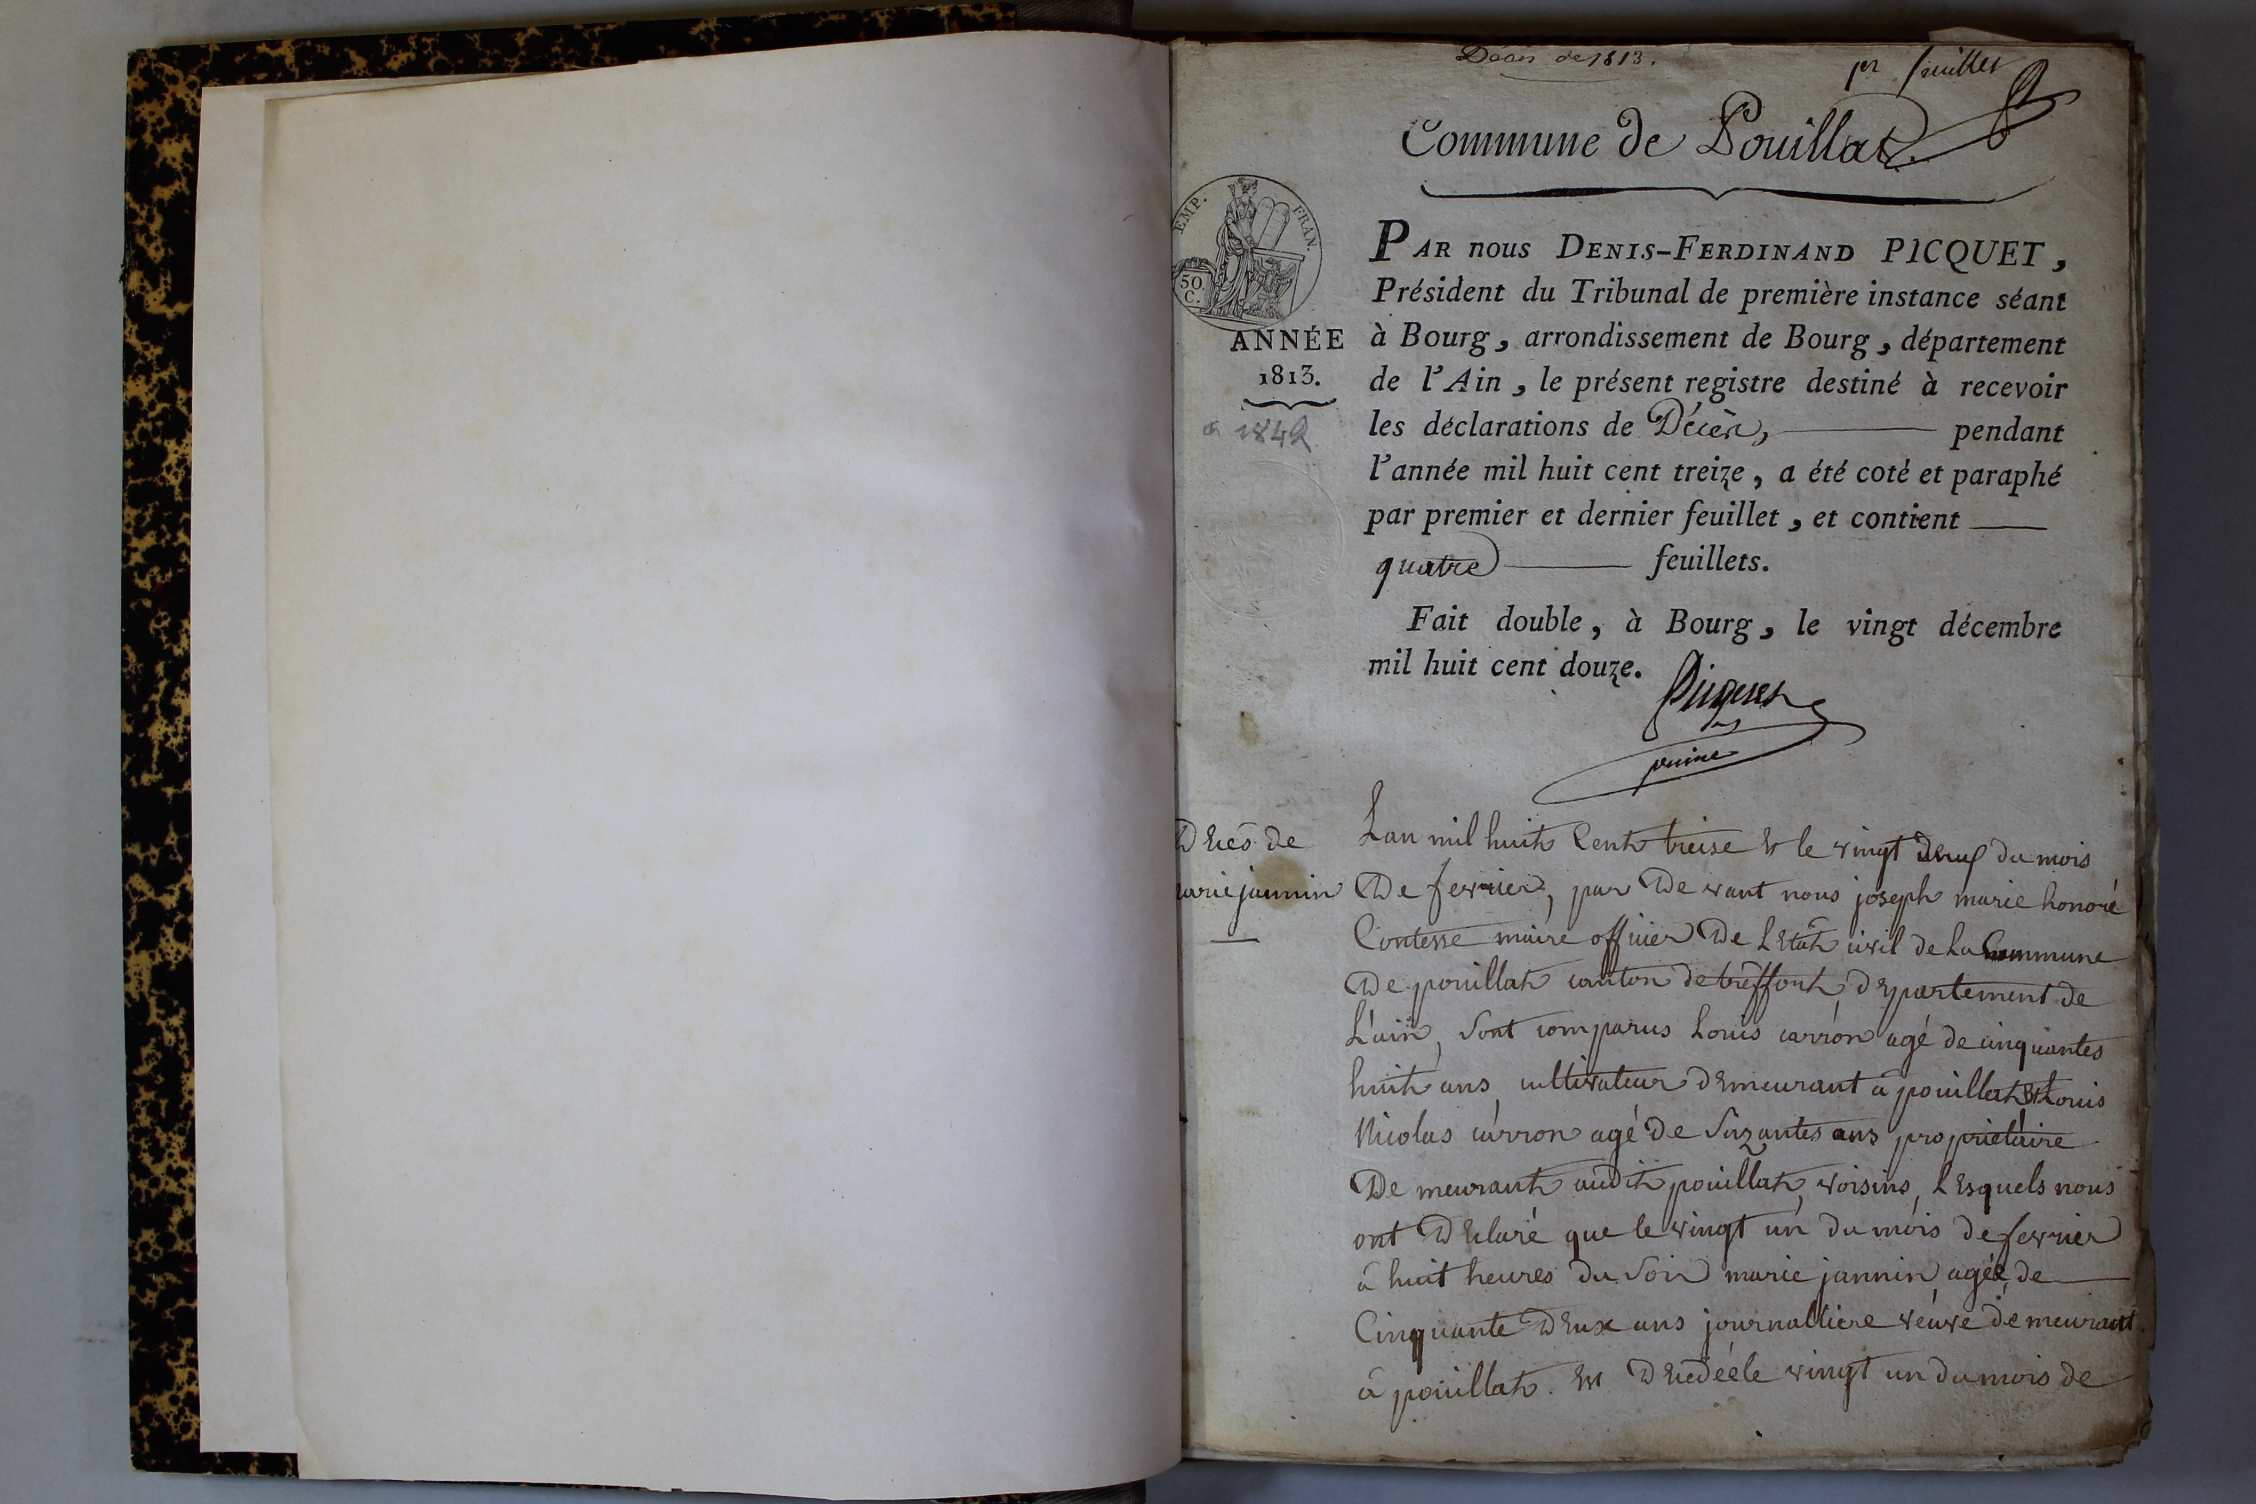 Décès de 1813.
pr feuillet
Commune de Pouillat.
EMP. FRAN.
50 C.
ANNÉE
1813.
à 1842
PAR nous DENIS-FERDINAND PICQUET,
Président du Tribunal de première instance séant
à Bourg, arrondissement de Bourg, département
de l'Ain, le présent registre destiné à recevoir
les déclarations de Décès, pendant
l'année mil huit cent treize, a été coté et paraphé
par premier et dernier feuillet, et contient
quatre feuillets.
Fait double, à Bourg, le vingt décembre
mil huit cent douze.
Picquet
Déces de
marie jannin
Lan mil huit Cent treise et le vingt deux du mois
De fevrier, par De vant nous joseph marie honoré
Contesse maire officier De L'Etat civil de La Commune
De pouillat canton de treffort, département de
L'ain, sont comparus Louis carron agé de cinquantes
huit ans, cultivateur demeurant à pouillat et Louis
Nicolas carron agé De soixantes ans propriétaire
De meurant audit pouillat, voisins, Lesquels nous
ont Déclaré que le vingt un du mois de fevrier
à huit heures du soir marie jannin agée de
Cinquante Deux ans journalliere veuve démeurant
à pouillat. Et Décédée le vingt un du mois de